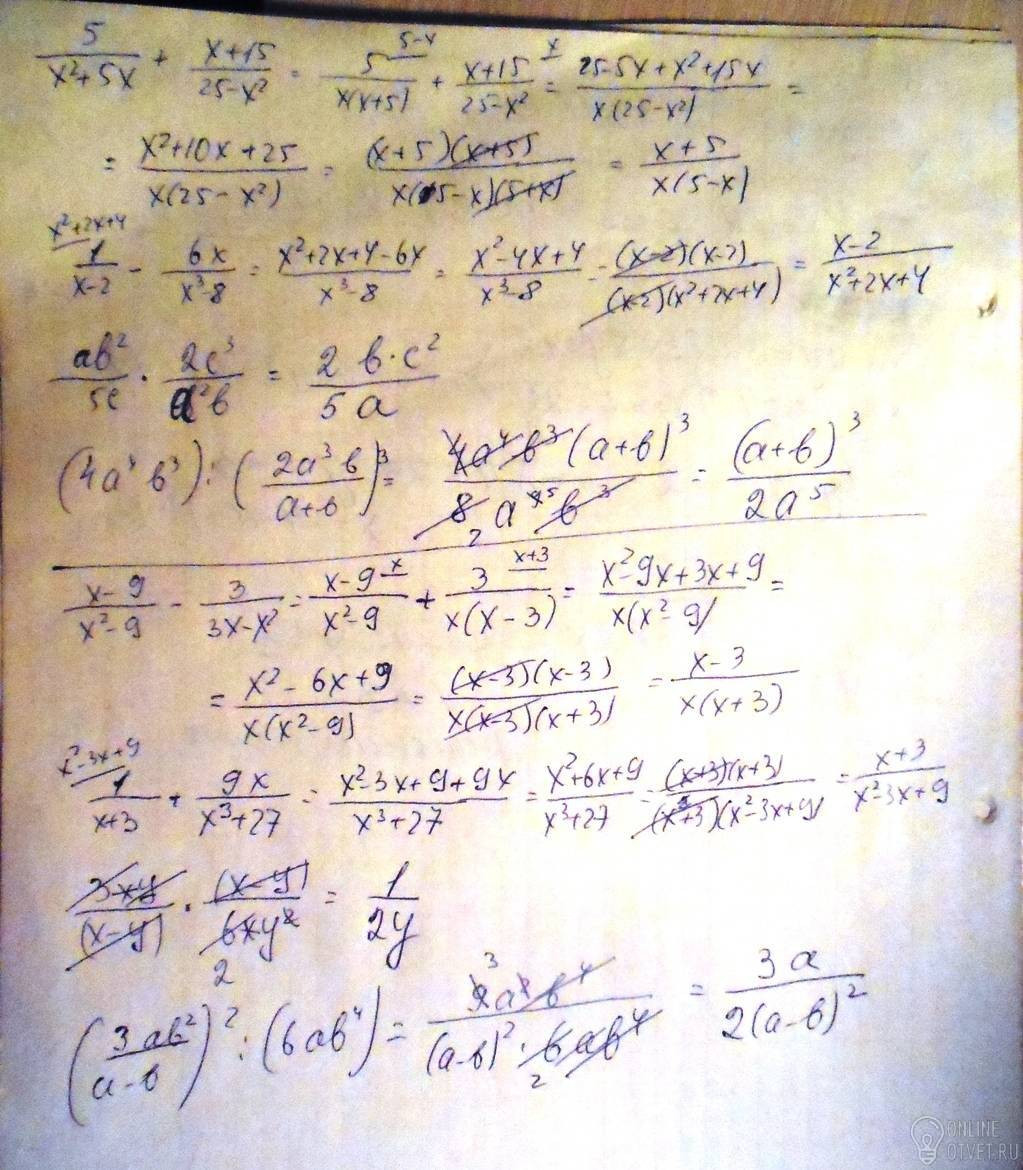 5/(x²+5x) + (x+15)/(25-x²) = 5/(x(x+5)) 5-x + (x+15)/(25-x²) x = (25-5x+x²+15x)/(x(25-x²)) =
= (x²+10x+25)/(x(25-x²)) = ((x+5)(x+5))/(x(5-x)(5+x)) = (x+5)/(x(5-x))
x²+2x+4
1/(x-2) - 6x/(x³-8) = (x²+2x+4-6x)/(x³-8) = (x²-4x+4)/(x³-8) = ((x-2)(x-2))/((x-2)(x²+2x+4)) = (x-2)/(x²+2x+4)
ab²/5c · 2c³/a²b = (2b·c²)/(5a)
(4a⁴b³):(2a³b/(a+b))³ = (4a⁴b³(a+b)³)/(8 2 a⁵b³) = (a+b)³/(2a⁵)
(x-9)/(x²-9) - 3/(3x-x²) = (x-9)/(x²-9) x + 3/(x(x-3)) x+3 = (x²-9x+3x+9)/(x(x²-9)) =
= (x²-6x+9)/(x(x²-9)) = ((x-3)(x-3))/(x(x-3)(x+3)) = (x-3)/(x(x+3))
x²-3x+9
1/(x+3) + 9x/(x³+27) = (x²-3x+9+9x)/(x³+27) = (x²+6x+9)/(x³+27) = ((x+3)(x+3))/((x+3)(x²-3x+9)) = (x+3)/(x²-3x+9)
3xy/(x-y) · (x-y)/(6xy²) 2 = 1/2y
(3ab²/(a-b))² : (6ab⁴) = (9 3 a²b⁴)/((a-b)²·6 2 ab⁴) = 3a/(2(a-b)²)
ONLINE
OTVET.RU